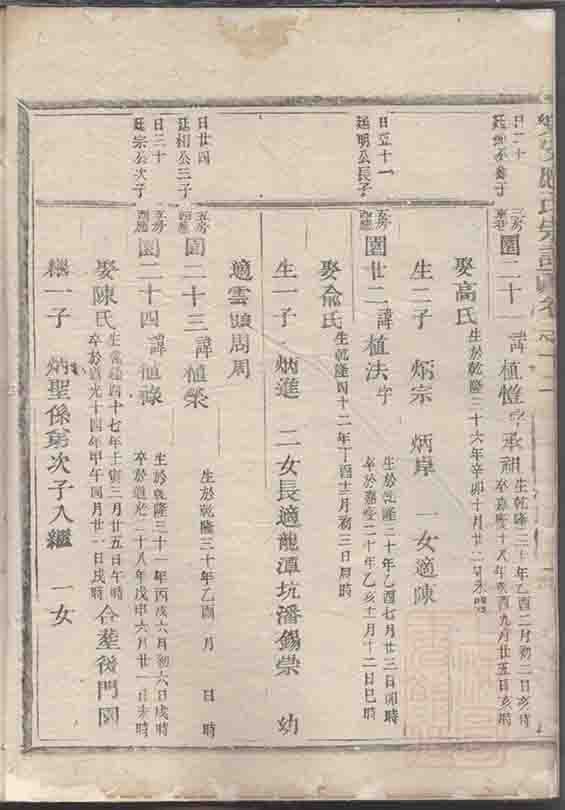 日二十
五房 園二十一 諱植惟字承祖 生乾隆三十年乙酉二月初二日亥時
卒嘉慶十八年癸酉九月廿五日亥時
娶高氏 生於乾隆三十六年辛卯十月廿二
生二子 炳宗 炳卓 一女適陳
日至十一
廷明公長子
五房 園廿二 諱植法字 生於乾隆三十年乙酉七月廿三日卯時
卒於嘉慶二十年乙亥十一月十二日巳時
娶俞氏 生於乾隆四十二年丁酉十二月初三日辰時
生一子 炳進 二女長適龍潭坑潘錫崇 幼
適雲頭周周
日廿四
廷相公三子
五房 園二十三 諱植榮 生於乾隆三十年乙酉 月 日 時
日三十
廷宗公次子
五房 園二十四 諱植祿 生於乾隆三十一年丙戌六月初六日戌時
卒於道光二十八年戊申六月廿一日未時
娶陳氏 生乾隆四十七年壬寅三月廿五日午時
卒於道光十四年甲午四月廿一日戌時 合塋後門園
繼一子 炳聖係第次子入繼 一女